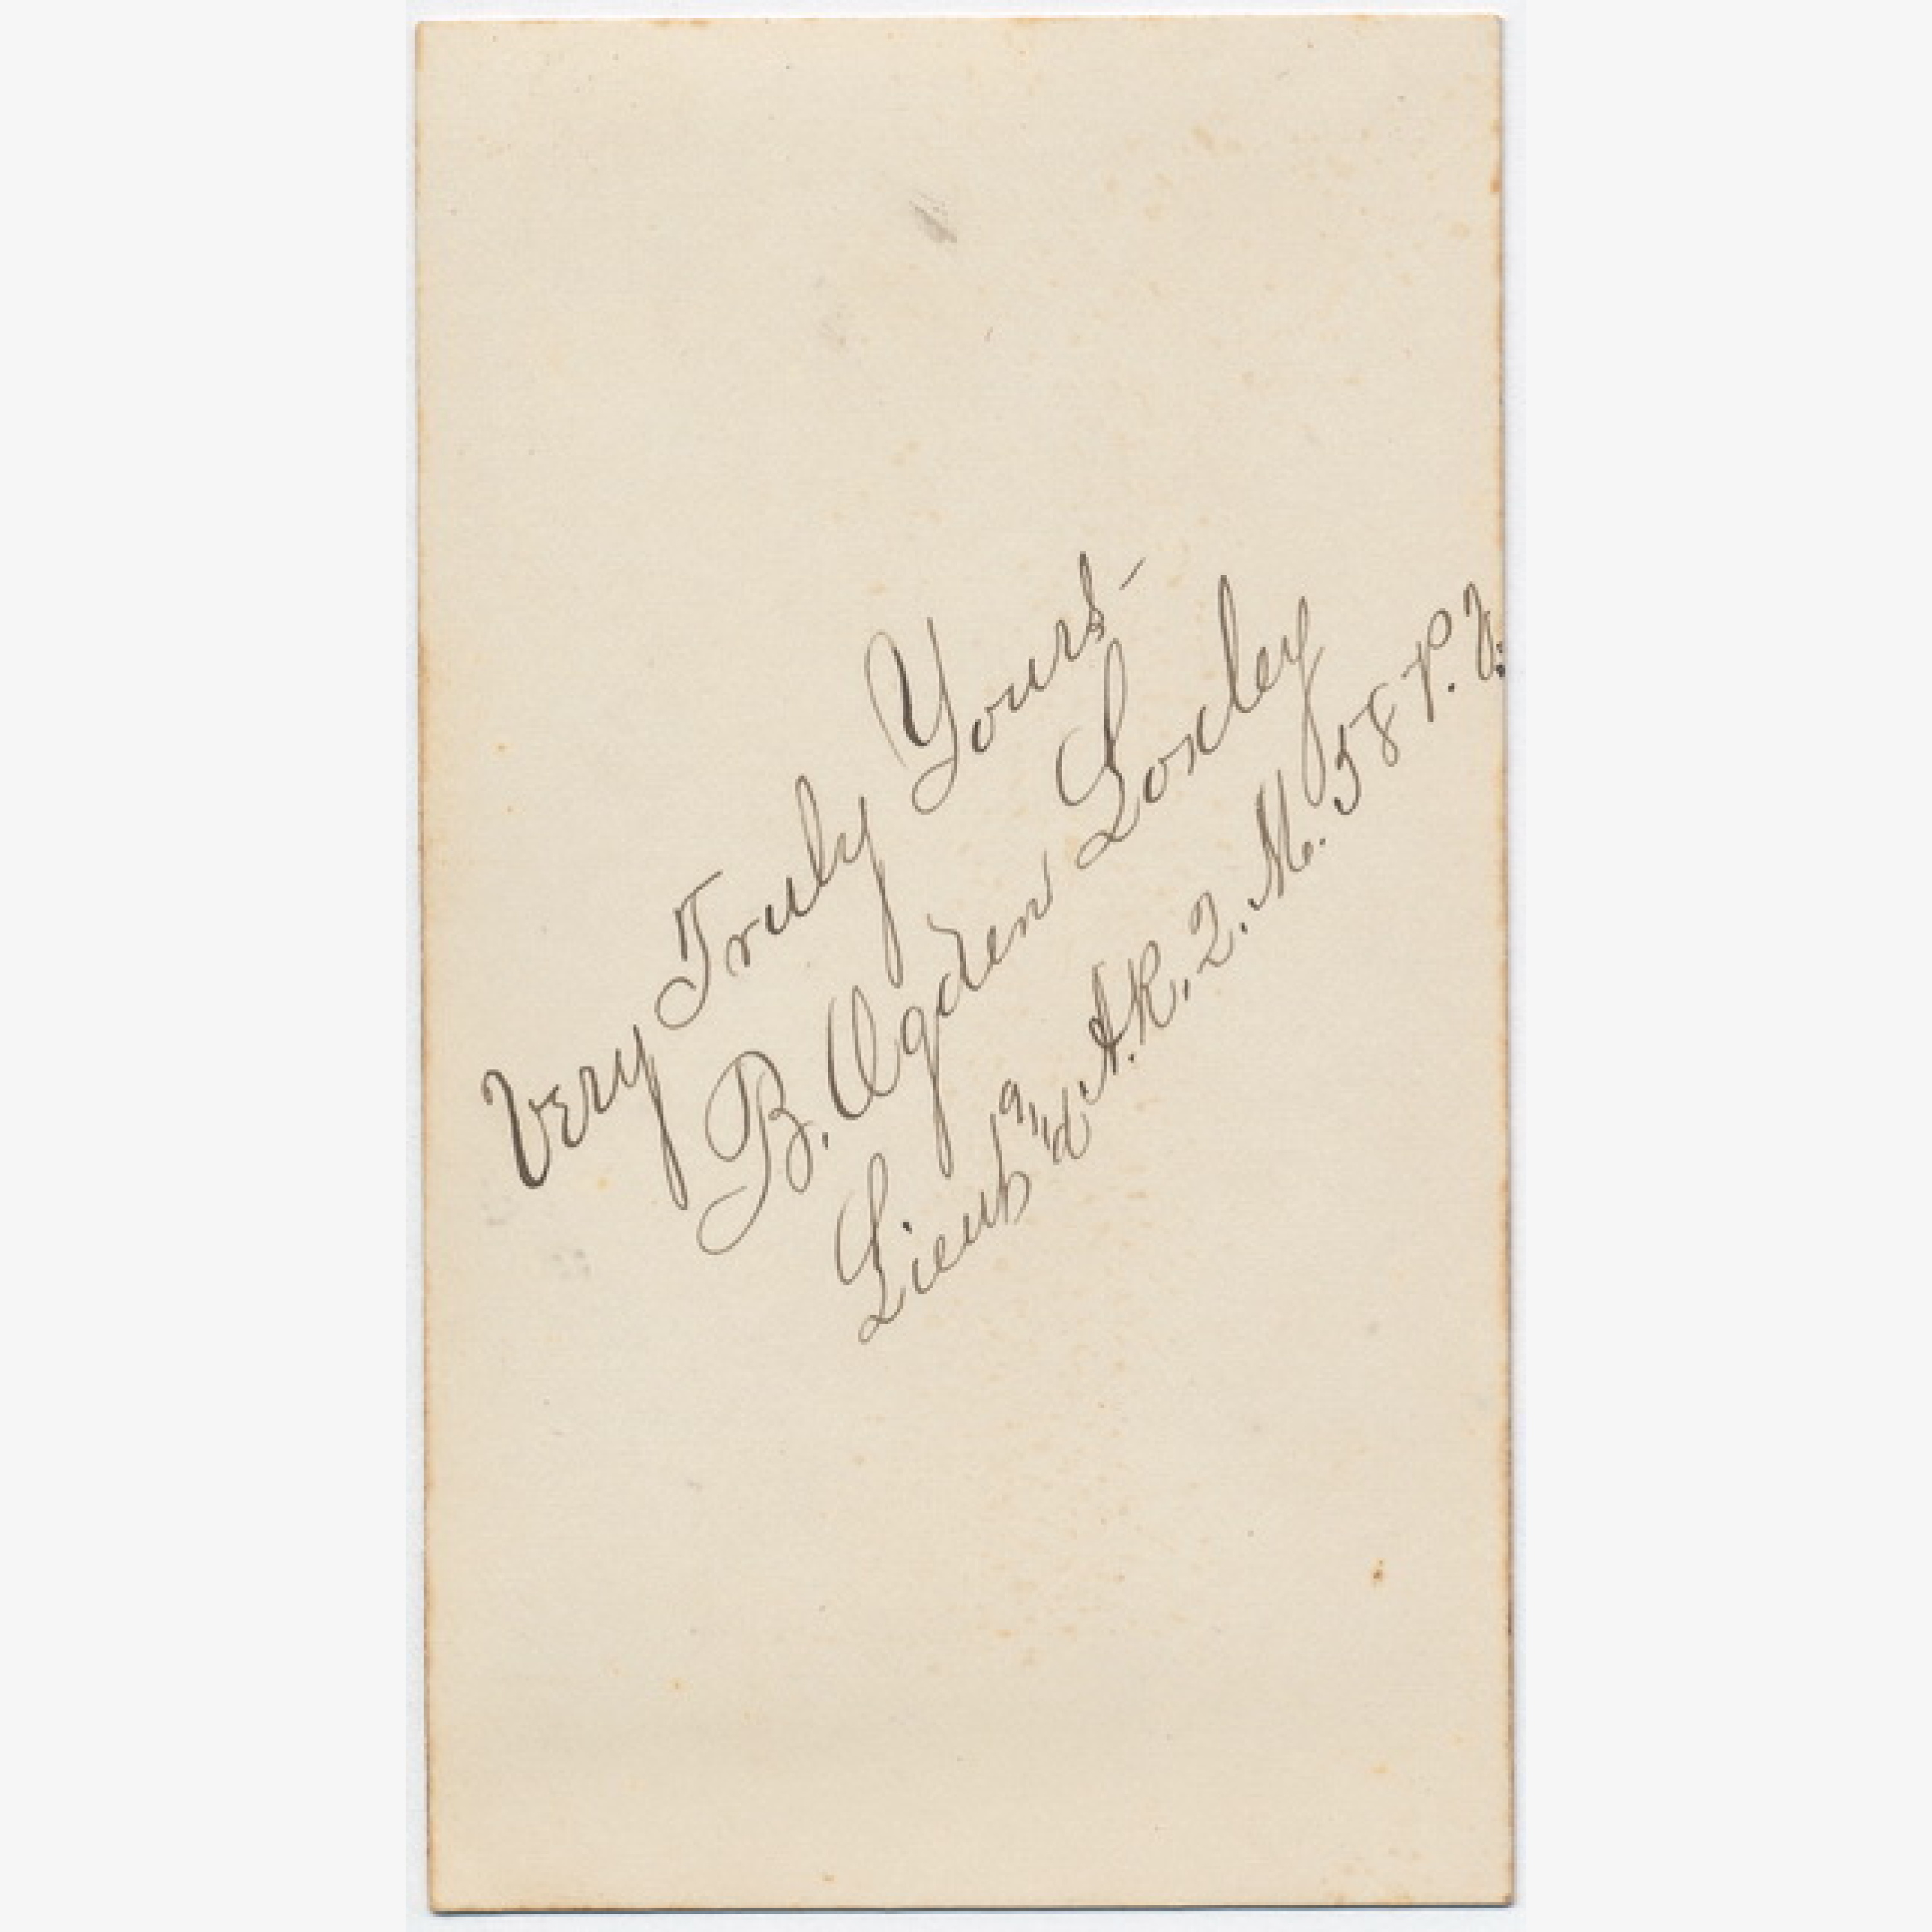 Very Truly Yours-
B. Ogden Loxley
Lieut and A.R.Q.M. 58 P.V.